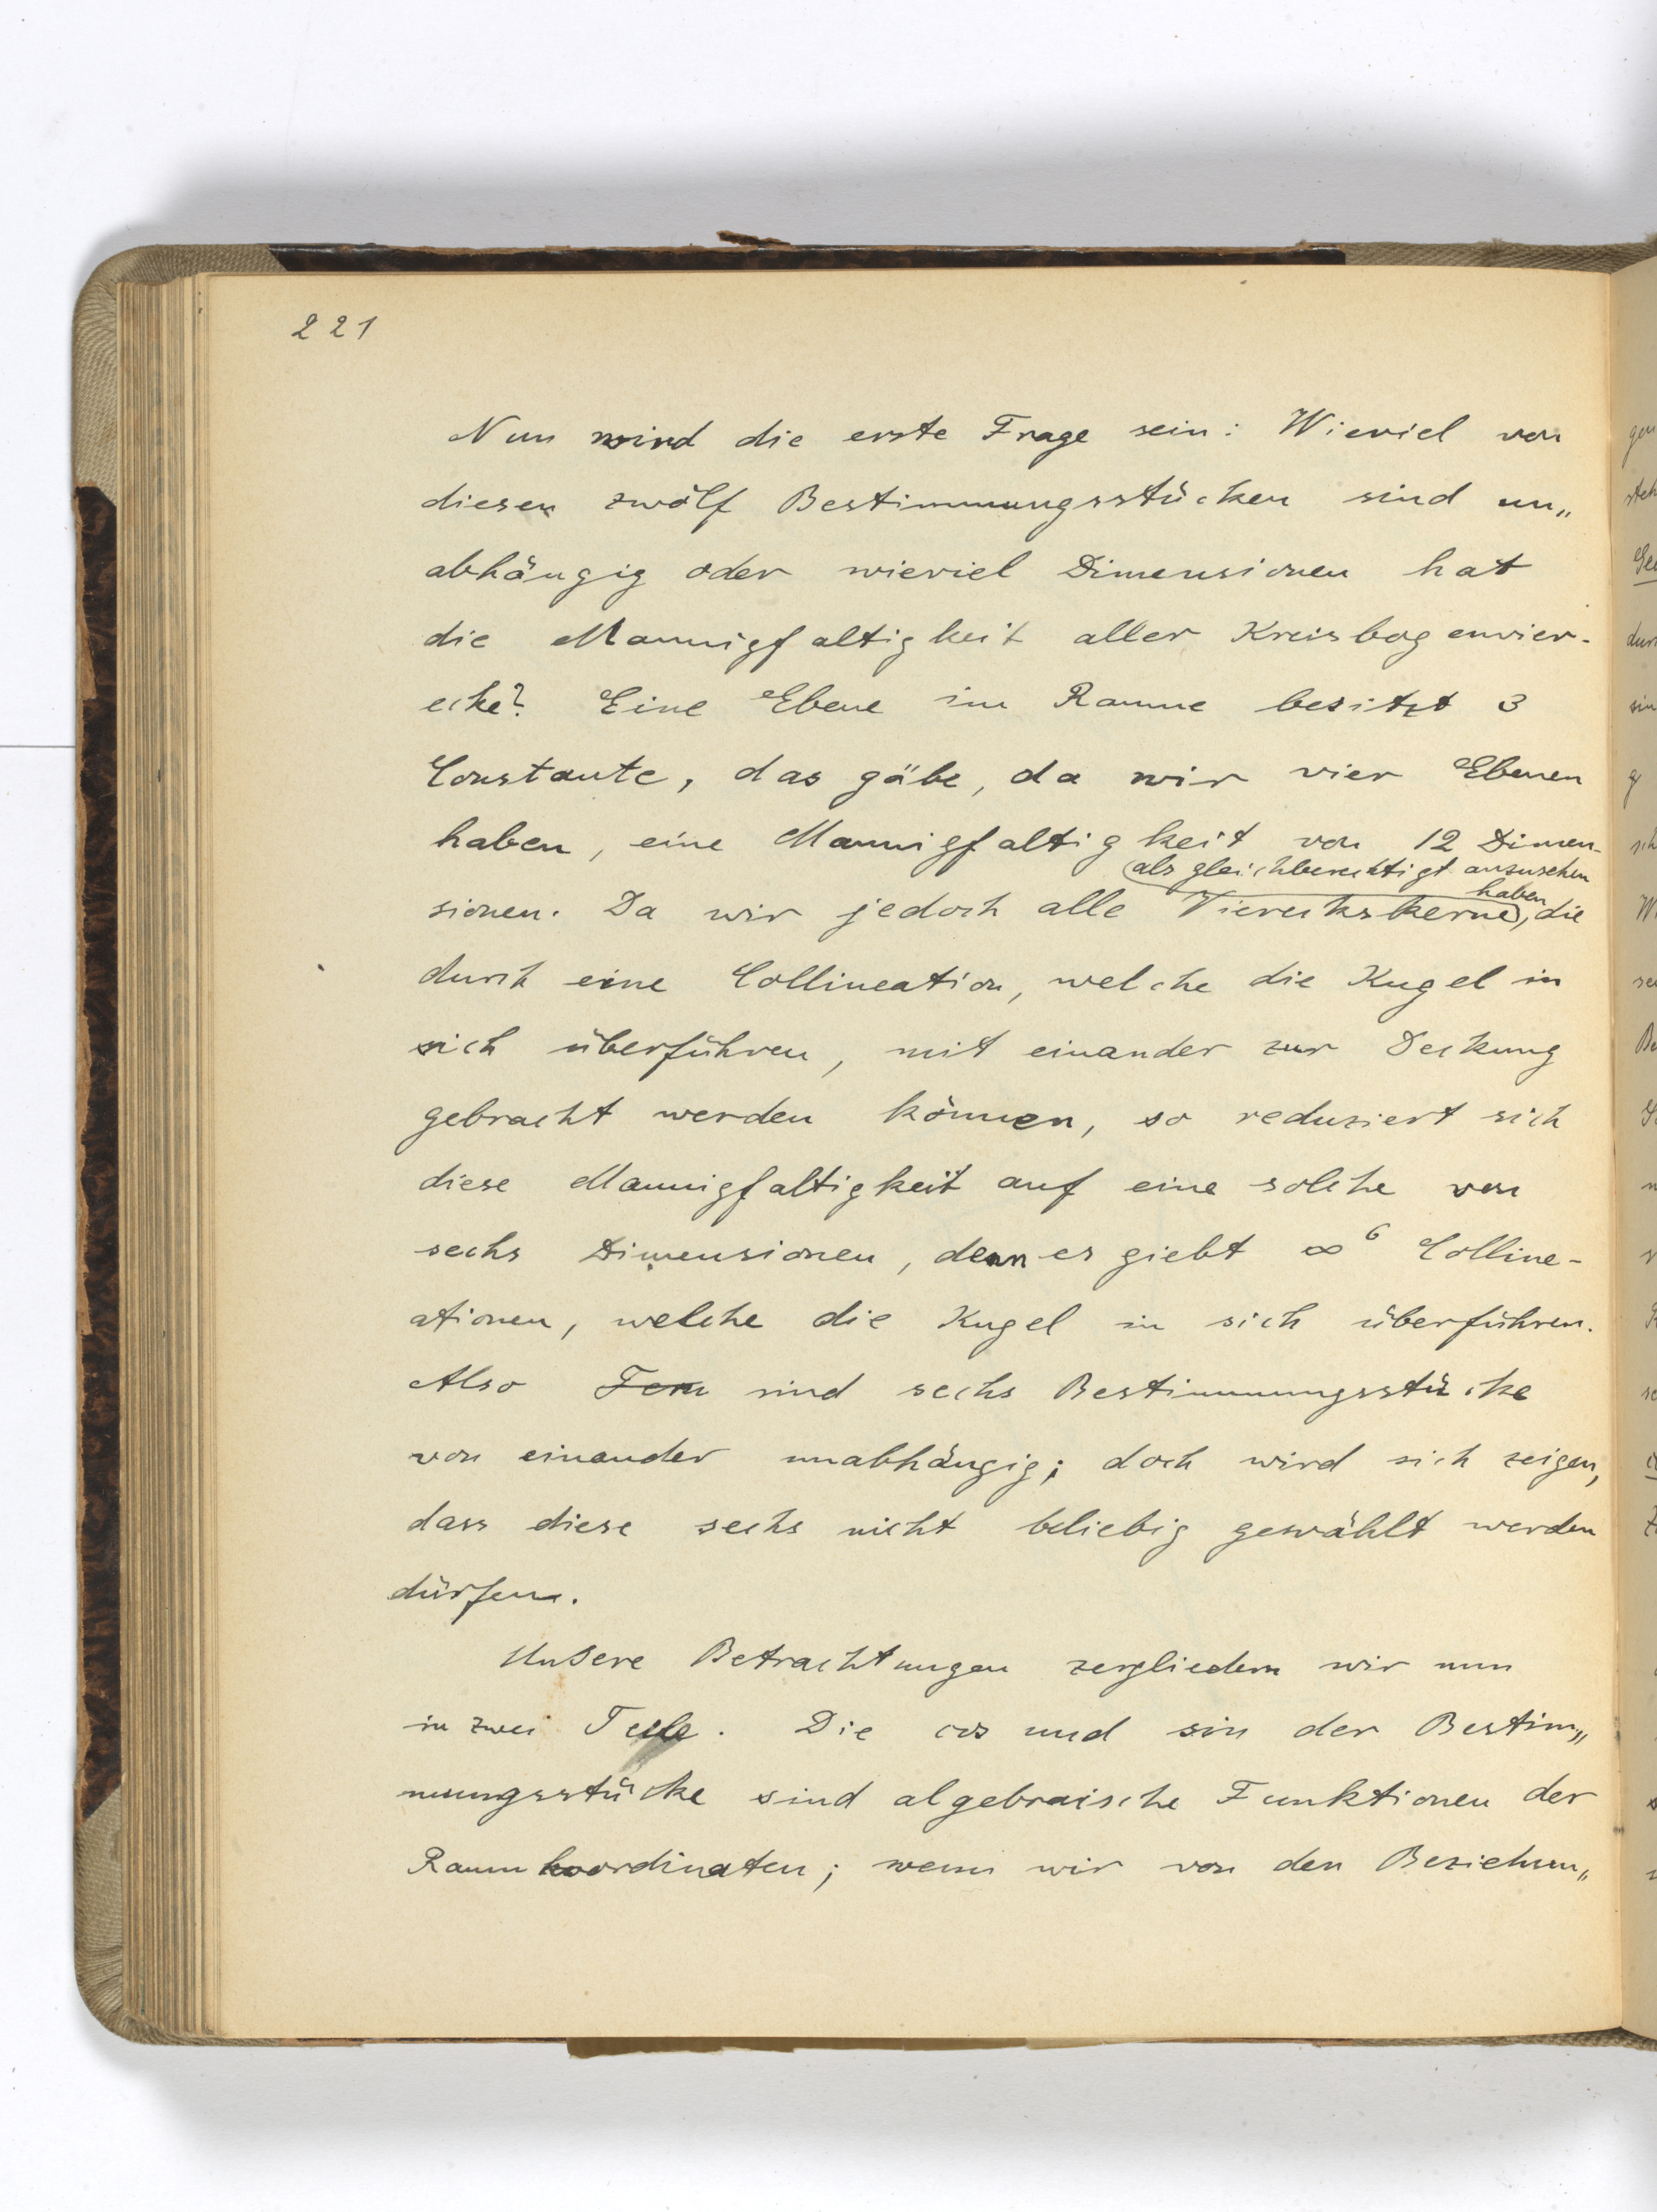 221
Nun wird die erste Frage sein: Wieviel von
diesen zwölf Bestimmungsstücken sind un„
abhängig oder wieviel Dimensionen hat
die Mannigfaltigkeit aller Kreisbogenvier-
ecke? Eine Ebene im Raume besitzt 3
Constante, das gäbe, da wir vier Ebenen
haben, eine Mannigfaltigkeit von 12 Dimen-
als gleichberechtigt anzusehen
haben
sionen. Da wir jedoch alle Viereckskerne, die
durch eine Collineation, welche die Kugel in
sich überführen, mit einander zur Deckung
gebracht werden können, so reduziert sich
diese Mannigfaltigkeit auf eine solche von
sechs Dimensionen, denn es giebt ∞⁶ Colline-
ationen, welche die Kugel in sich überführen.
Also sind sechs Bestimmungsstücke
von einander unabhängig; doch wird sich zeigen,
dass diese sechs nicht beliebig gewählt werden
dürfen.
Unsere Betrachtungen zergliedern wir nun
in zwei Teile. Die cos und sin der Bestim„
mungsstücke sind algebraische Funktionen der
Raumkoordinaten; wenn wir von den Beziehun„
gen
steh
dur
sin
g
sch